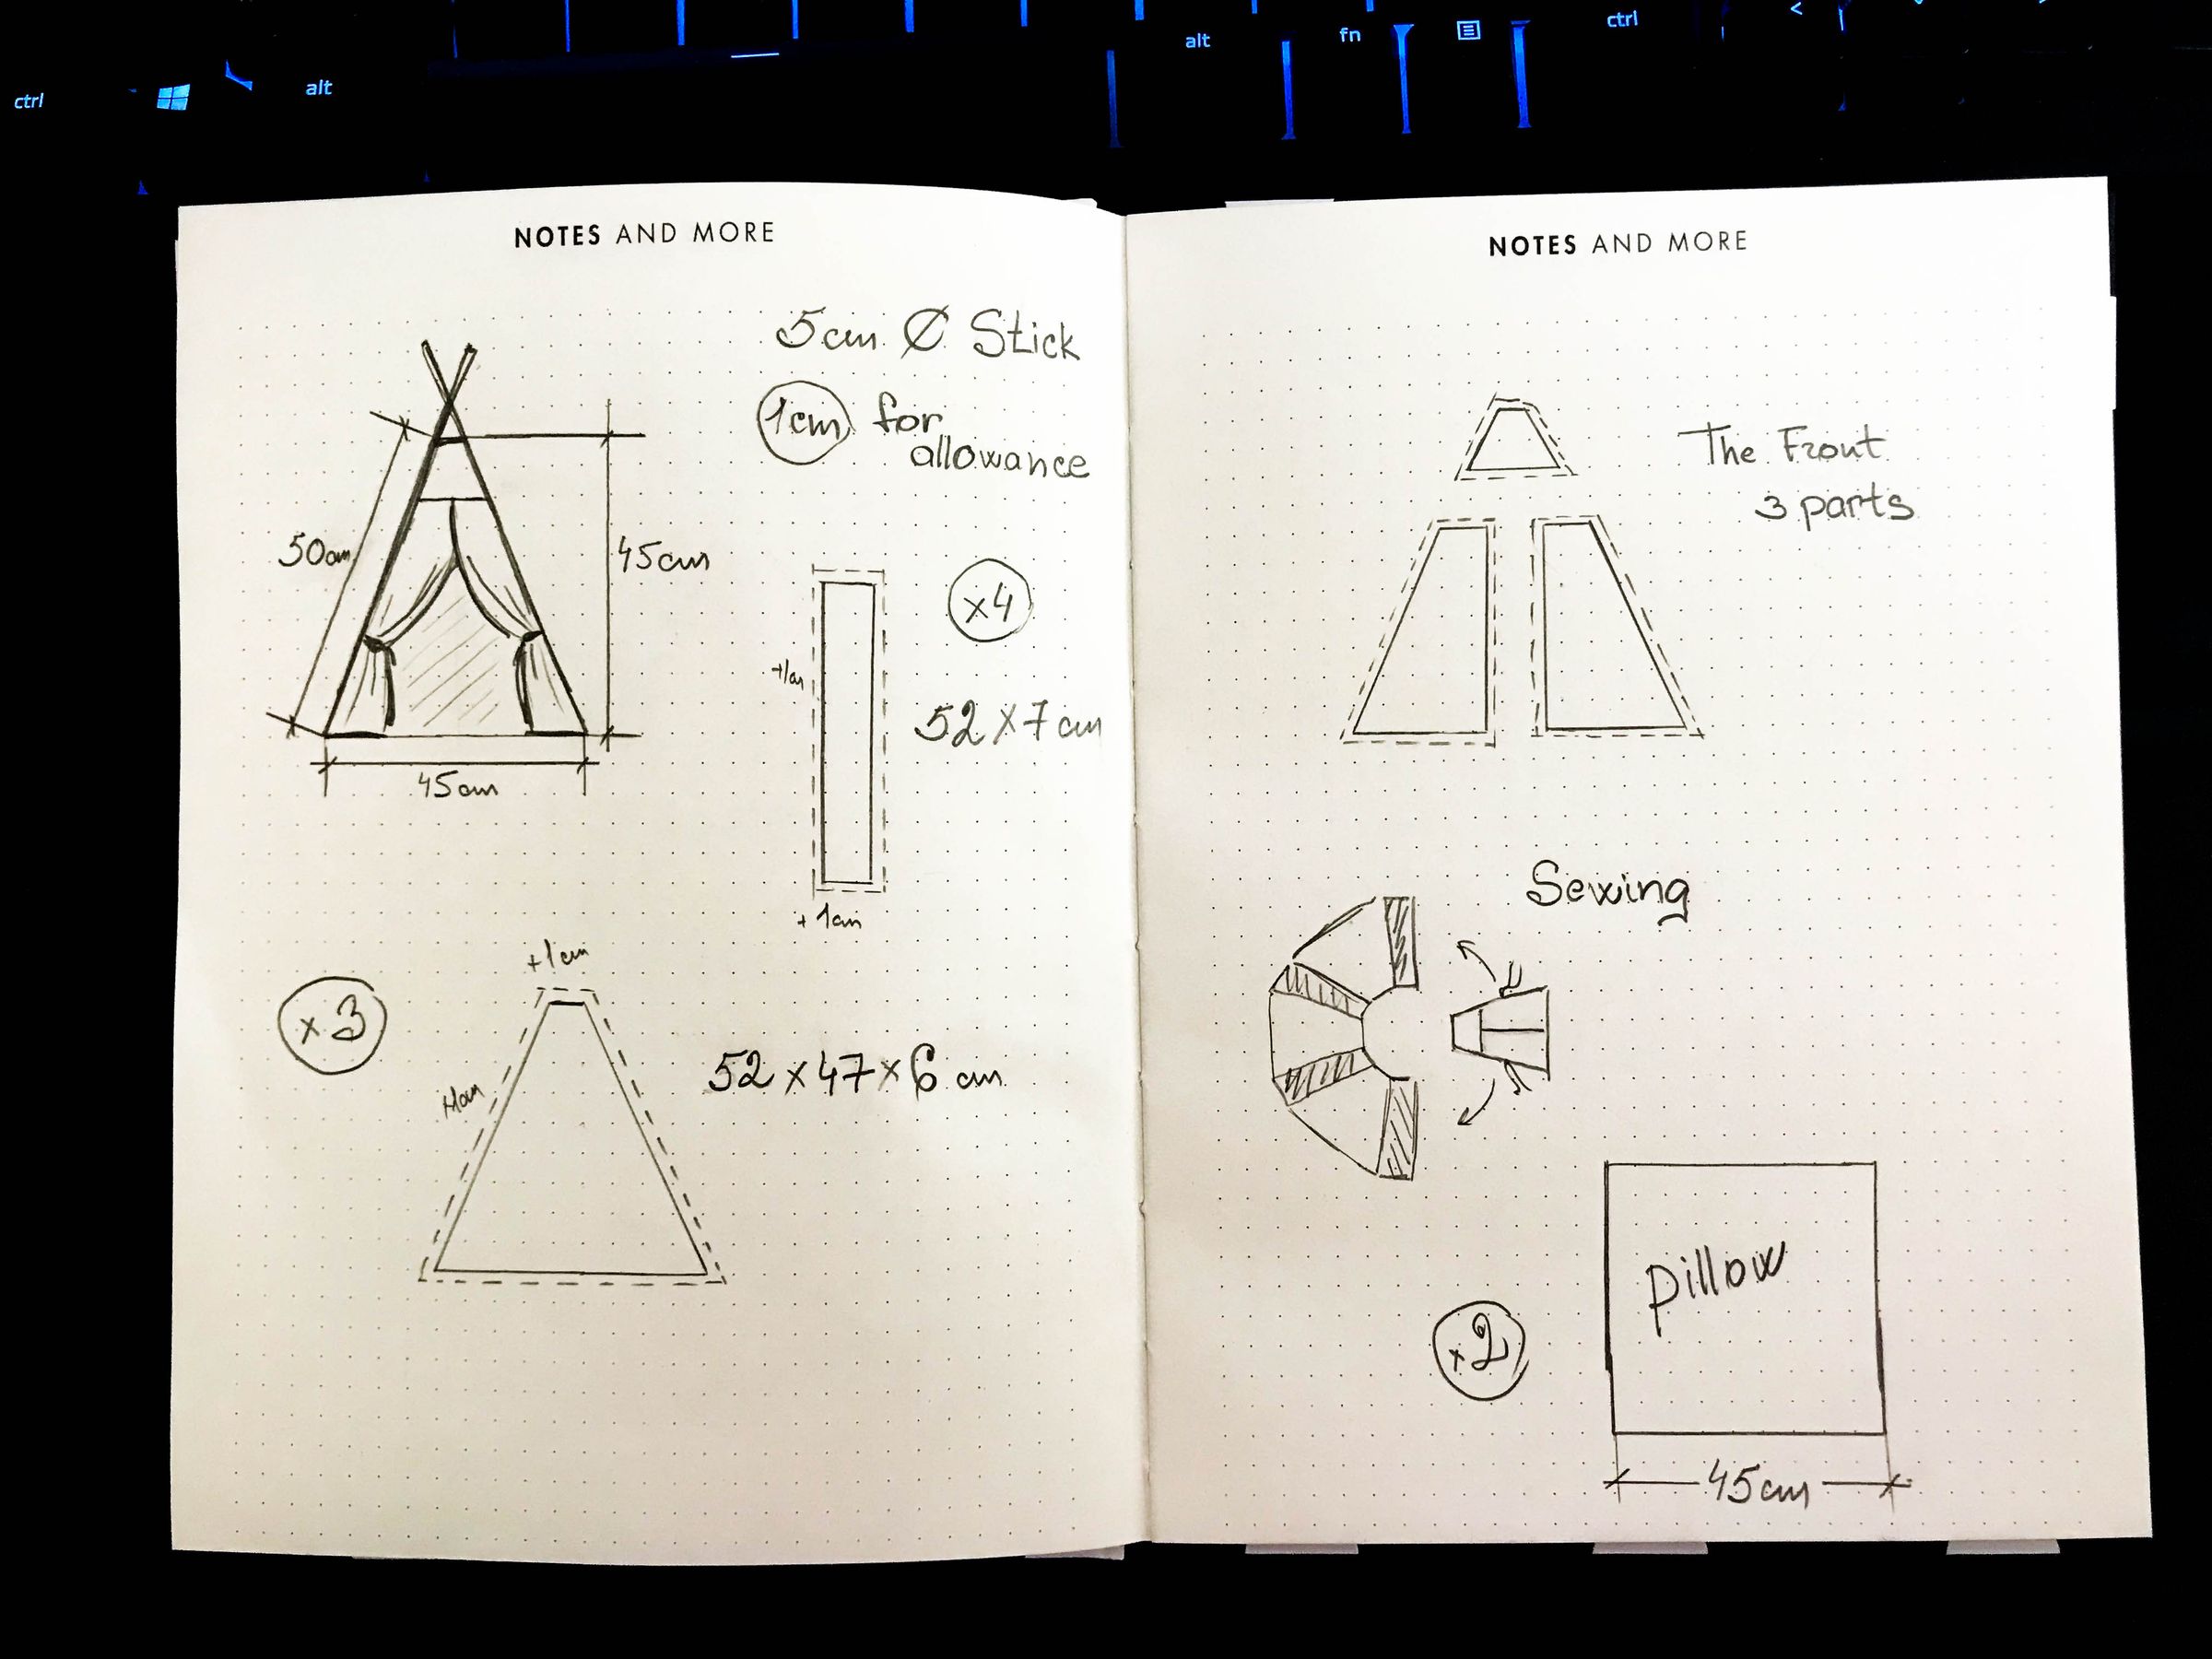 ctrl
alt
alt
fn
ctrl
<
NOTES AND MORE
5cm Ø Stick
1cm for
allowance
50cm
45cm
45cm
x4
+1cm
52 x 7 cm
+1cm
+1cm
x3
+1cm
52 x 47 x 6 cm
NOTES AND MORE
The Front
3 parts
Sewing
pillow
x2
45cm